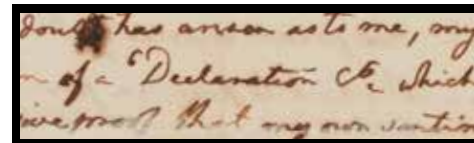 doubt has arisen as to me, my
n of a "Declaration &c. which
ive proof that my own sentim